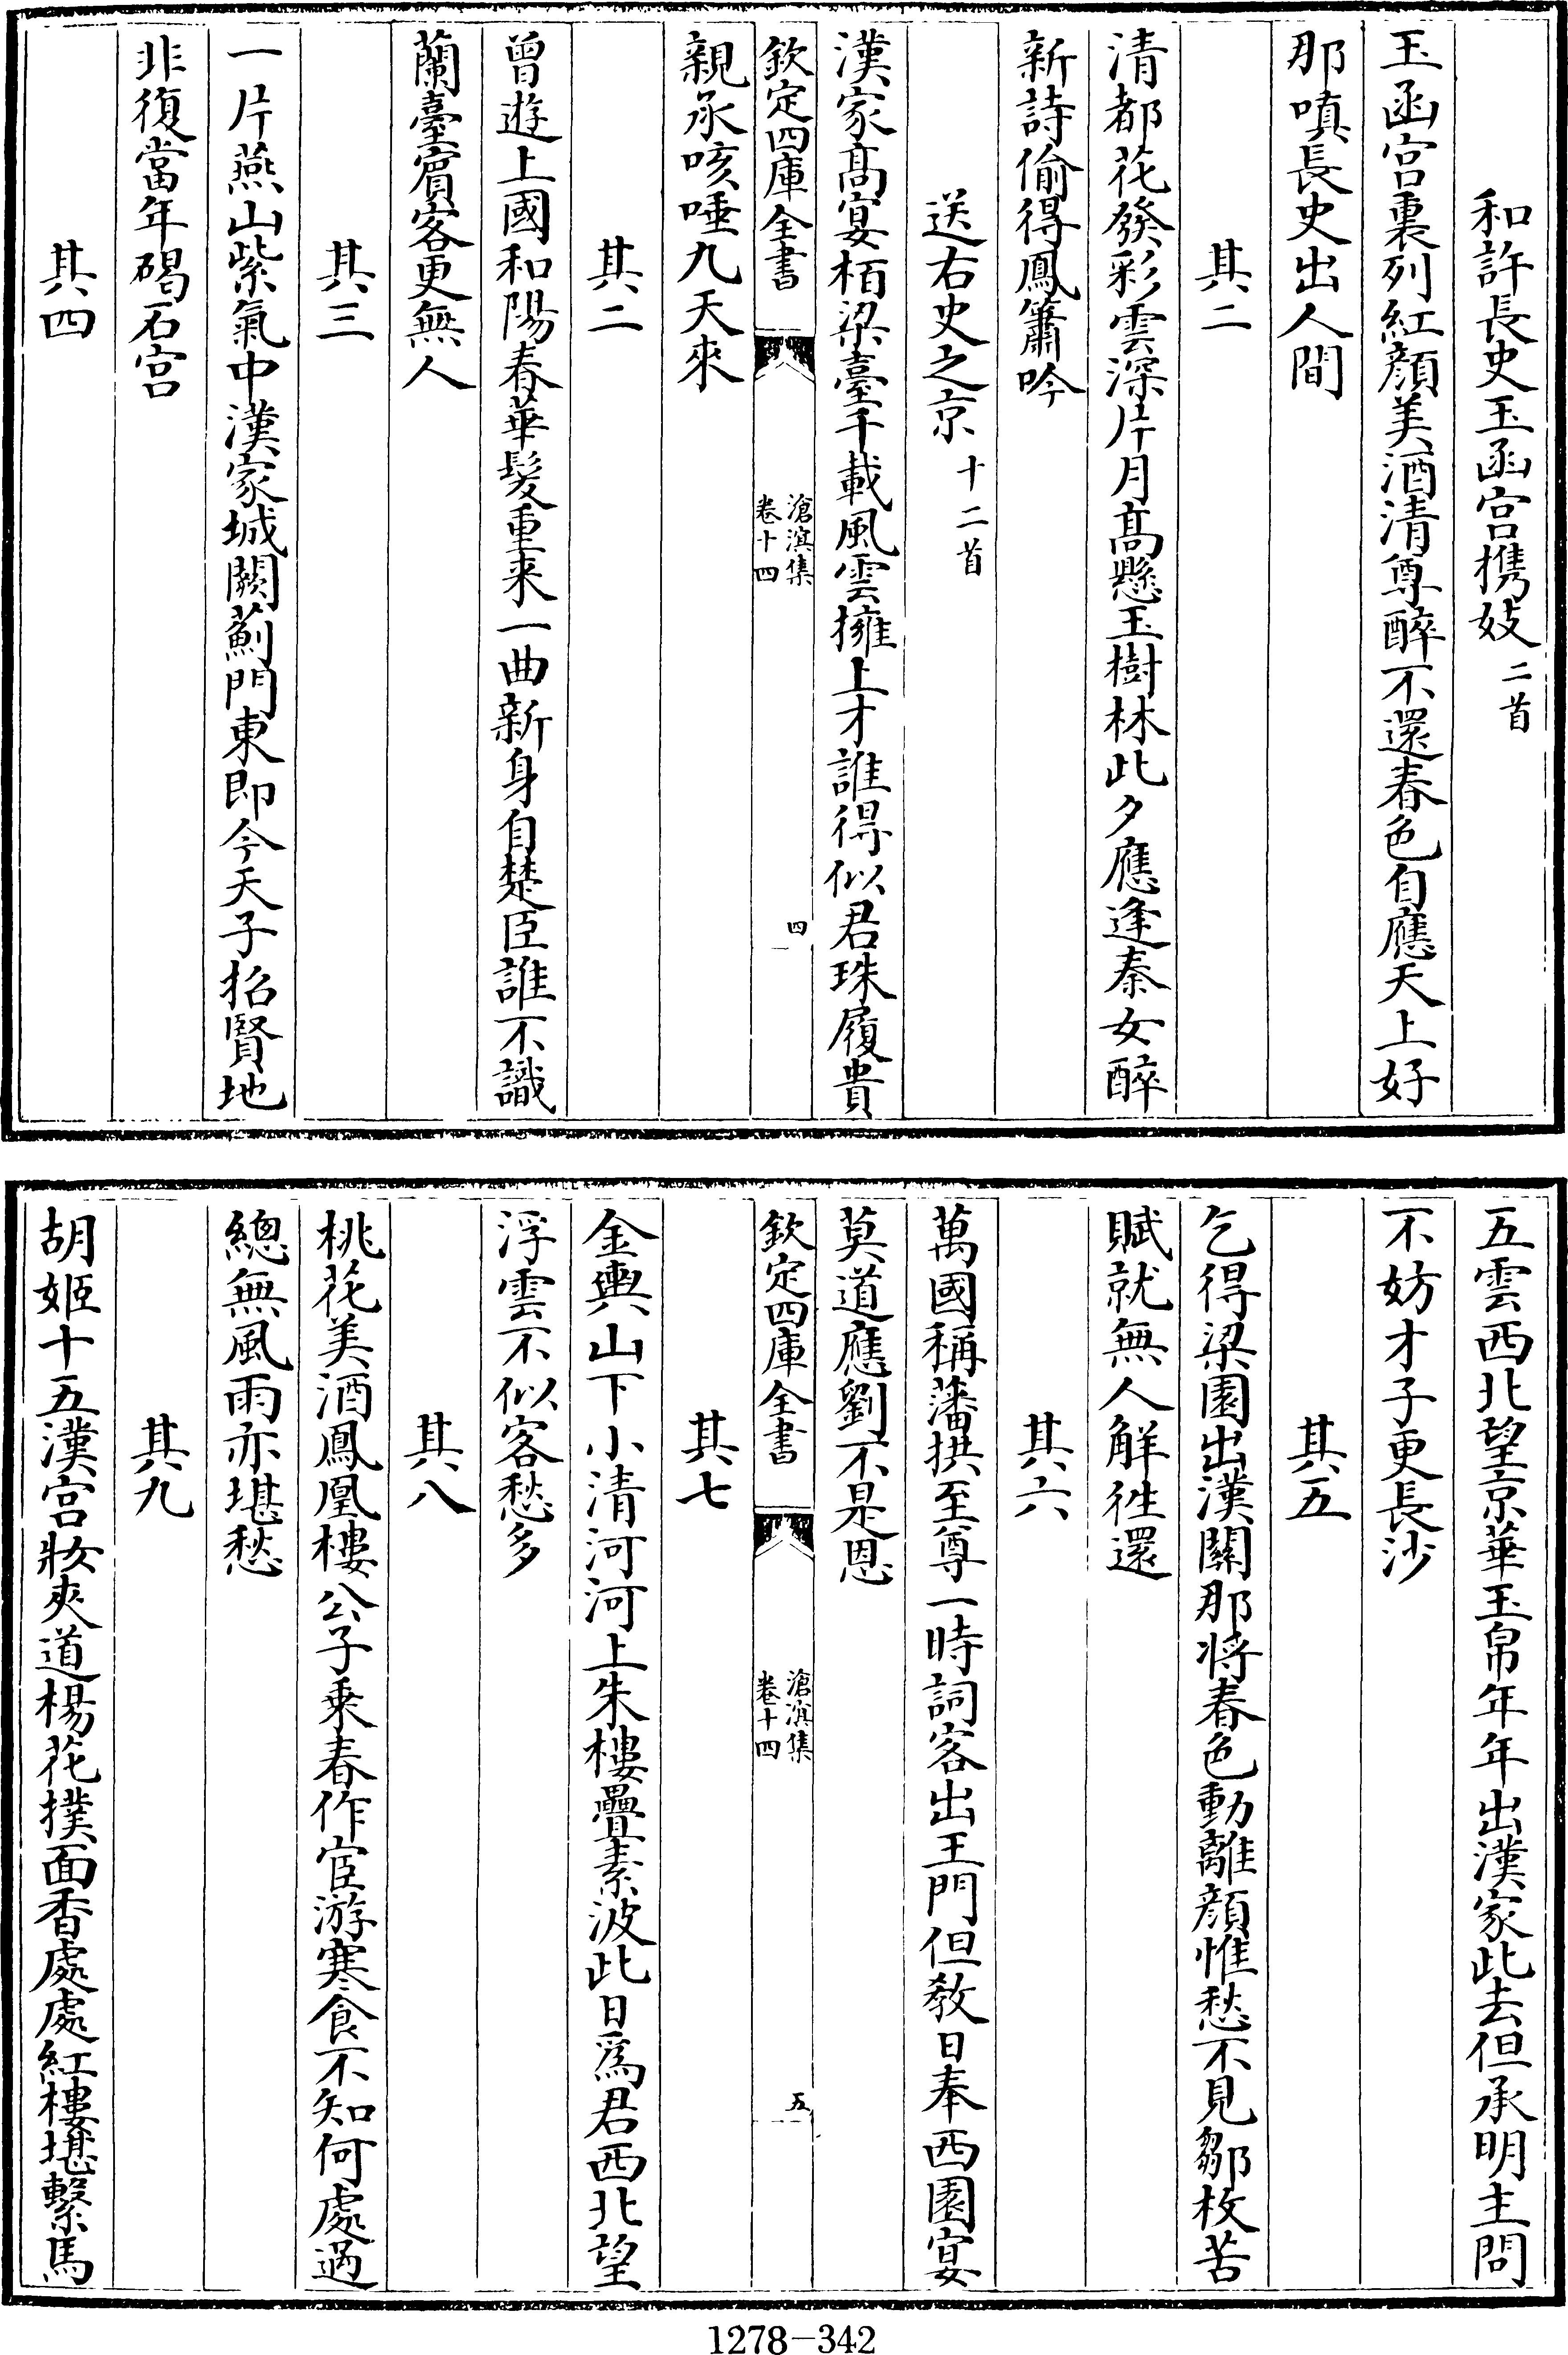 和許長史玉函宫携妓二首
玉函宫裏列紅顔美酒清尊醉不還春色自應天上好
那嗔長史出人間
其二
清都花發彩雲深片月髙懸玉樹林此夕應逢秦女醉
新詩偷得鳳簫吟
送右史之京十二首
漢家髙宴栢梁臺千載風雲擁上才誰得似君珠履貴
欽定四庫全書
滄溟集
卷十四
四
親承咳唾九天來
其二
曾遊上國和陽春華髮重来一曲新身自楚臣誰不識
蘭臺賔客更無人
其三
一片燕山紫氣中漢家城闕薊門東即今天子招賢地
非復當年碣石宫
其四
五雲西北望京華玉帛年年出漢家此去但承明主問
不妨才子更長沙
其五
乞得梁園出漢關那将春色動離顔惟愁不見鄒枚苦
賦就無人解徃還
其六
萬國稱藩拱至尊一時詞客出王門但教日奉西園宴
莫道應劉不是恩
欽定四庫全書
滄溟集
卷十四
五
其七
金輿山下小清河河上朱樓疊素波此日為君西北望
浮雲不似客愁多
其八
桃花美酒鳳凰樓公子乘春作宦游寒食不知何處過
總無風雨亦堪愁
其九
胡姬十五漢宫妝夾道楊花撲面香處處紅樓堪繫馬
1278-342